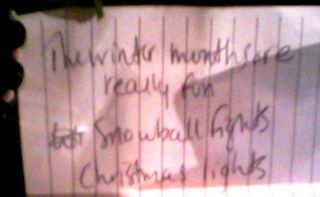 The winter months are
really fun
Snowball fights
Christmas lights